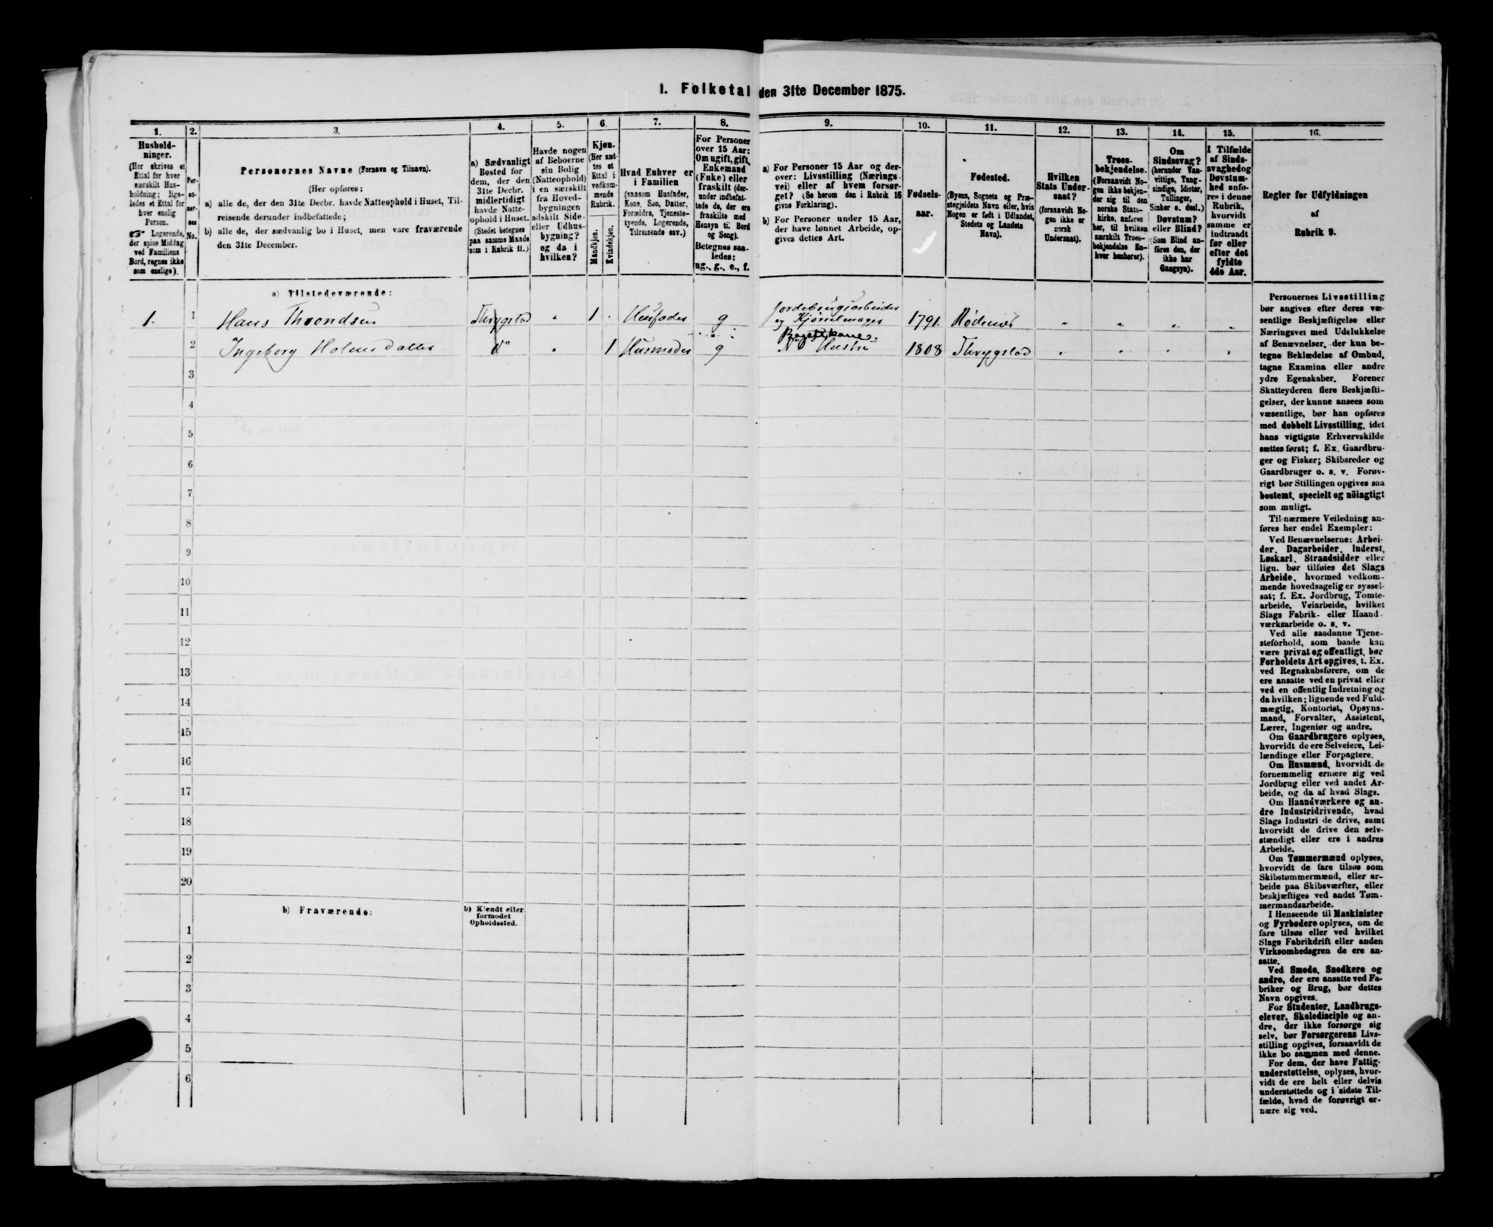 1. Folketal den 31te December 1875.
1.
Hushold-
ninger.
(Her skrives et
Ettal for hver
særskilt Hus-
holdning; lige-
ledes et Ettal for
hver enslig
Person.
☞ Logerende,
der spise Middag
ved Familiens
Bord, regnes ikke
som enslige).
2.
Per-
so-
ner-
nes
No.
3.
Personernes Navne (Fornavn og Tilnavn).
(Her opføres:
a) alle de, der den 31te Decbr. havde Natteophold i Huset, Til-
reisende derunder indbefattede;
b) alle de, der sædvanlig bo i Huset, men vare fraværende
den 31te December.
4.
a) Sædvanligt
Bosted for
dem, der den
31te Decbr.
midlertidigt
havde Natte-
ophold i Huset.
(Stedet betegnes
paa samme Maade
som i Rubrik 11.)
5.
Havde nogen
af Beboerne
sin Bolig
(Natteophold)
i en særskilt
fra Hoved-
bygningen
adskilt Side-
eller Udhus-
bygning?
og da i
hvilken?
6.
Kjøn.
(Her sæt-
tes et
Ettal i
vedkom-
mende
Rubrik.
Mandkjøn.
Kvindekjøn.
7.
Hvad Enhver er
i Familien
(saasom Husfader,
Kone, Søn, Datter,
Forældre, Tjeneste-
tyende, Logerende,
Tilreisende osv.)
8.
For Personer
over 15 Aar:
Om ugift, gift,
Enkemand
(Enke) eller
fraskilt (der-
under indbefat-
tede de, der ere
fraskilte med
Hensyn til Bord
og Seng).
Betegnes saa-
ledes:
ug., g., e., f.
9.
a) For Personer 15 Aar og der-
over: Livsstilling (Nærings-
vei) eller af hvem forsør-
get? (Se herom den i Rubrik 16
givne Forklaring).
b) For Personer under 15 Aar,
der have lønnet Arbeide, op-
gives dettes Art.
10.
Fødsels-
aar.
11.
Fødested.
(Byens, Sognets og Præ-
stegjeldets Navn eller, hvis
Nogen er født i Udlandet,
Stedets og Landets
Navn).
12.
Hvilken
Stats Under-
saat?
(forsaavidt No-
gen ikke er
norsk
Undersaat).
13.
Troes-
bekjendelse.
(Forsaavidt No-
gen ikke bekjen-
der sig til den
norske Stats-
kirke, anføres
her, til hvilken
særskilt Troes-
bekjendelse En-
hver henhører).
14.
Om
Sindssvag?
(herunder Van-
vittige, Tung-
sindige, Idioter,
Tullinger,
Sinker o. desl.)
Døvstum?
eller Blind?
(Som Blind an-
føres den, der
ikke har
Gangsyn).
15.
I Tilfælde
af Sinds-
svaghed og
Døvstum-
hed anfø-
res i denne
Rubrik,
hvorvidt
samme er
indtraadt
før eller
efter det
fyldte
4de Aar.
16.
Regler for Udfyldningen
af
Rubrik 9.
a) Tilstedeværende:
1. 1 Hans Throndsen Thrygstad " 1 . Husfader g Jordebrugsarbeider og Hjørulmager 1791. Rødenæs " " " "
2 Ingeborg Holms datter do " 1 Husmoder g Hustru 1808 Thrygstad " " " "
3
4
5
6
7
8
9
10
11
12
13
14
15
16
17
18
19
20
b) Fraværende:
b) Kjendt eller
formodet
Opholdssted.
1
2
3
4
5
6
Personernes Livsstilling
bør angives efter deres væ-
sentlige Beskjæftigelse eller
Næringsvei med Udelukkelse
af Benævnelser, der kun be-
tegne Beklædelse af Ombud,
tagne Examina eller andre
ydre Egenskaber. Forener
Skatteyderen flere Beskjæfti-
gelser, der kunne ansees som
væsentlige, bør han opføres
med dobbelt Livsstilling, idet
hans vigtigste Erhvervskilde
sættes først; f. Ex. Gaardbru-
ger og Fisker; Skibsreder og
Gaardbruger o. s. v. Forøv-
rigt bør Stillingen opgives saa
bestemt, specielt og nöiagtigt
som muligt.
Til nærmere Veiledning an-
føres her endel Exempler:
Ved Benævnelserne: Arbei-
der, Dagarbeider, Inderst,
Løskarl, Strandsidder eller
lign. bør tilføies det Slags
Arbeide, hvormed vedkom-
mende hovedsagelig er syssel-
sat; f. Ex. Jordbrug, Tomte-
arbeide, Veiarbeide, hvilket
Slags Fabrik- eller Haand-
værksarbeide o. s. v.
Ved alle saadanne Tjene-
steforhold, som baade kan
være privat og offentligt, bør
Forholdets Art opgives, t. Ex.
ved Regnskabsførere, om de
ere ansatte ved en privat eller
ved en offentlig Indretning og
da hvilken; lignende ved Fuld-
mægtig, Kontorist, Opsyns-
mand, Forvalter, Assistent,
Lærer, Ingeniør og andre.
Om Gaardbrugere oplyses,
hvorvidt de ere Selveiere, Lei-
lændinge eller Forpagtere.
Om Husmænd, hvorvidt de
fornemmelig ernære sig ved
Jordbrug eller ved andet Ar-
beide, og da af hvad Slags.
Om Haandværkere og an-
dre Industridrivende, hvad
Slags Industri de drive, samt
hvorvidt de drive den selv-
stændigt eller ere i andres
Arbeide.
Om Tømmermænd oplyses,
hvorvidt de fare tilsøs som
Skibstømmermænd, eller ar-
beide paa Skibsværfter, eller
beskjæftiges ved andet Tøm-
mermandsarbeide.
I Henseende til Maskinister
og Fyrbødere oplyses, om de
fare tilsøs eller ved hvilket
Slags Fabrikdrift eller anden
Virksomhedsgren de ere an-
satte.
Ved Smede, Snedkere og
andre, der ere ansatte ved Fa-
briker og Brug, bør dettes
Navn opgives.
For Studenter, Landbrugs-
elever, Skoledisciple og an-
dre, der ikke forsørge sig
selv, bør Forsørgerens Livs-
stilling opgives, forsaavidt de
ikke bo sammen med denne.
For dem, der have Fattig-
understøttelse, oplyses, hvor-
vidt de ere helt eller delvis
understøttede og i sidste Til-
fælde, hvad de forøvrigt er-
nære sig ved.